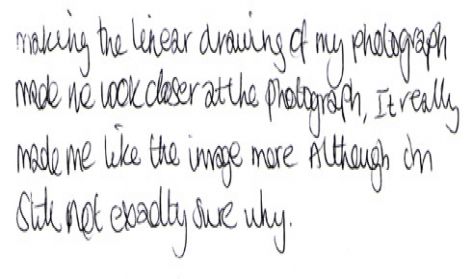 making the linear drawing of my photograph
made me look closer at the photograph, It really
made me like the image more Although im
still not exactly sure why.